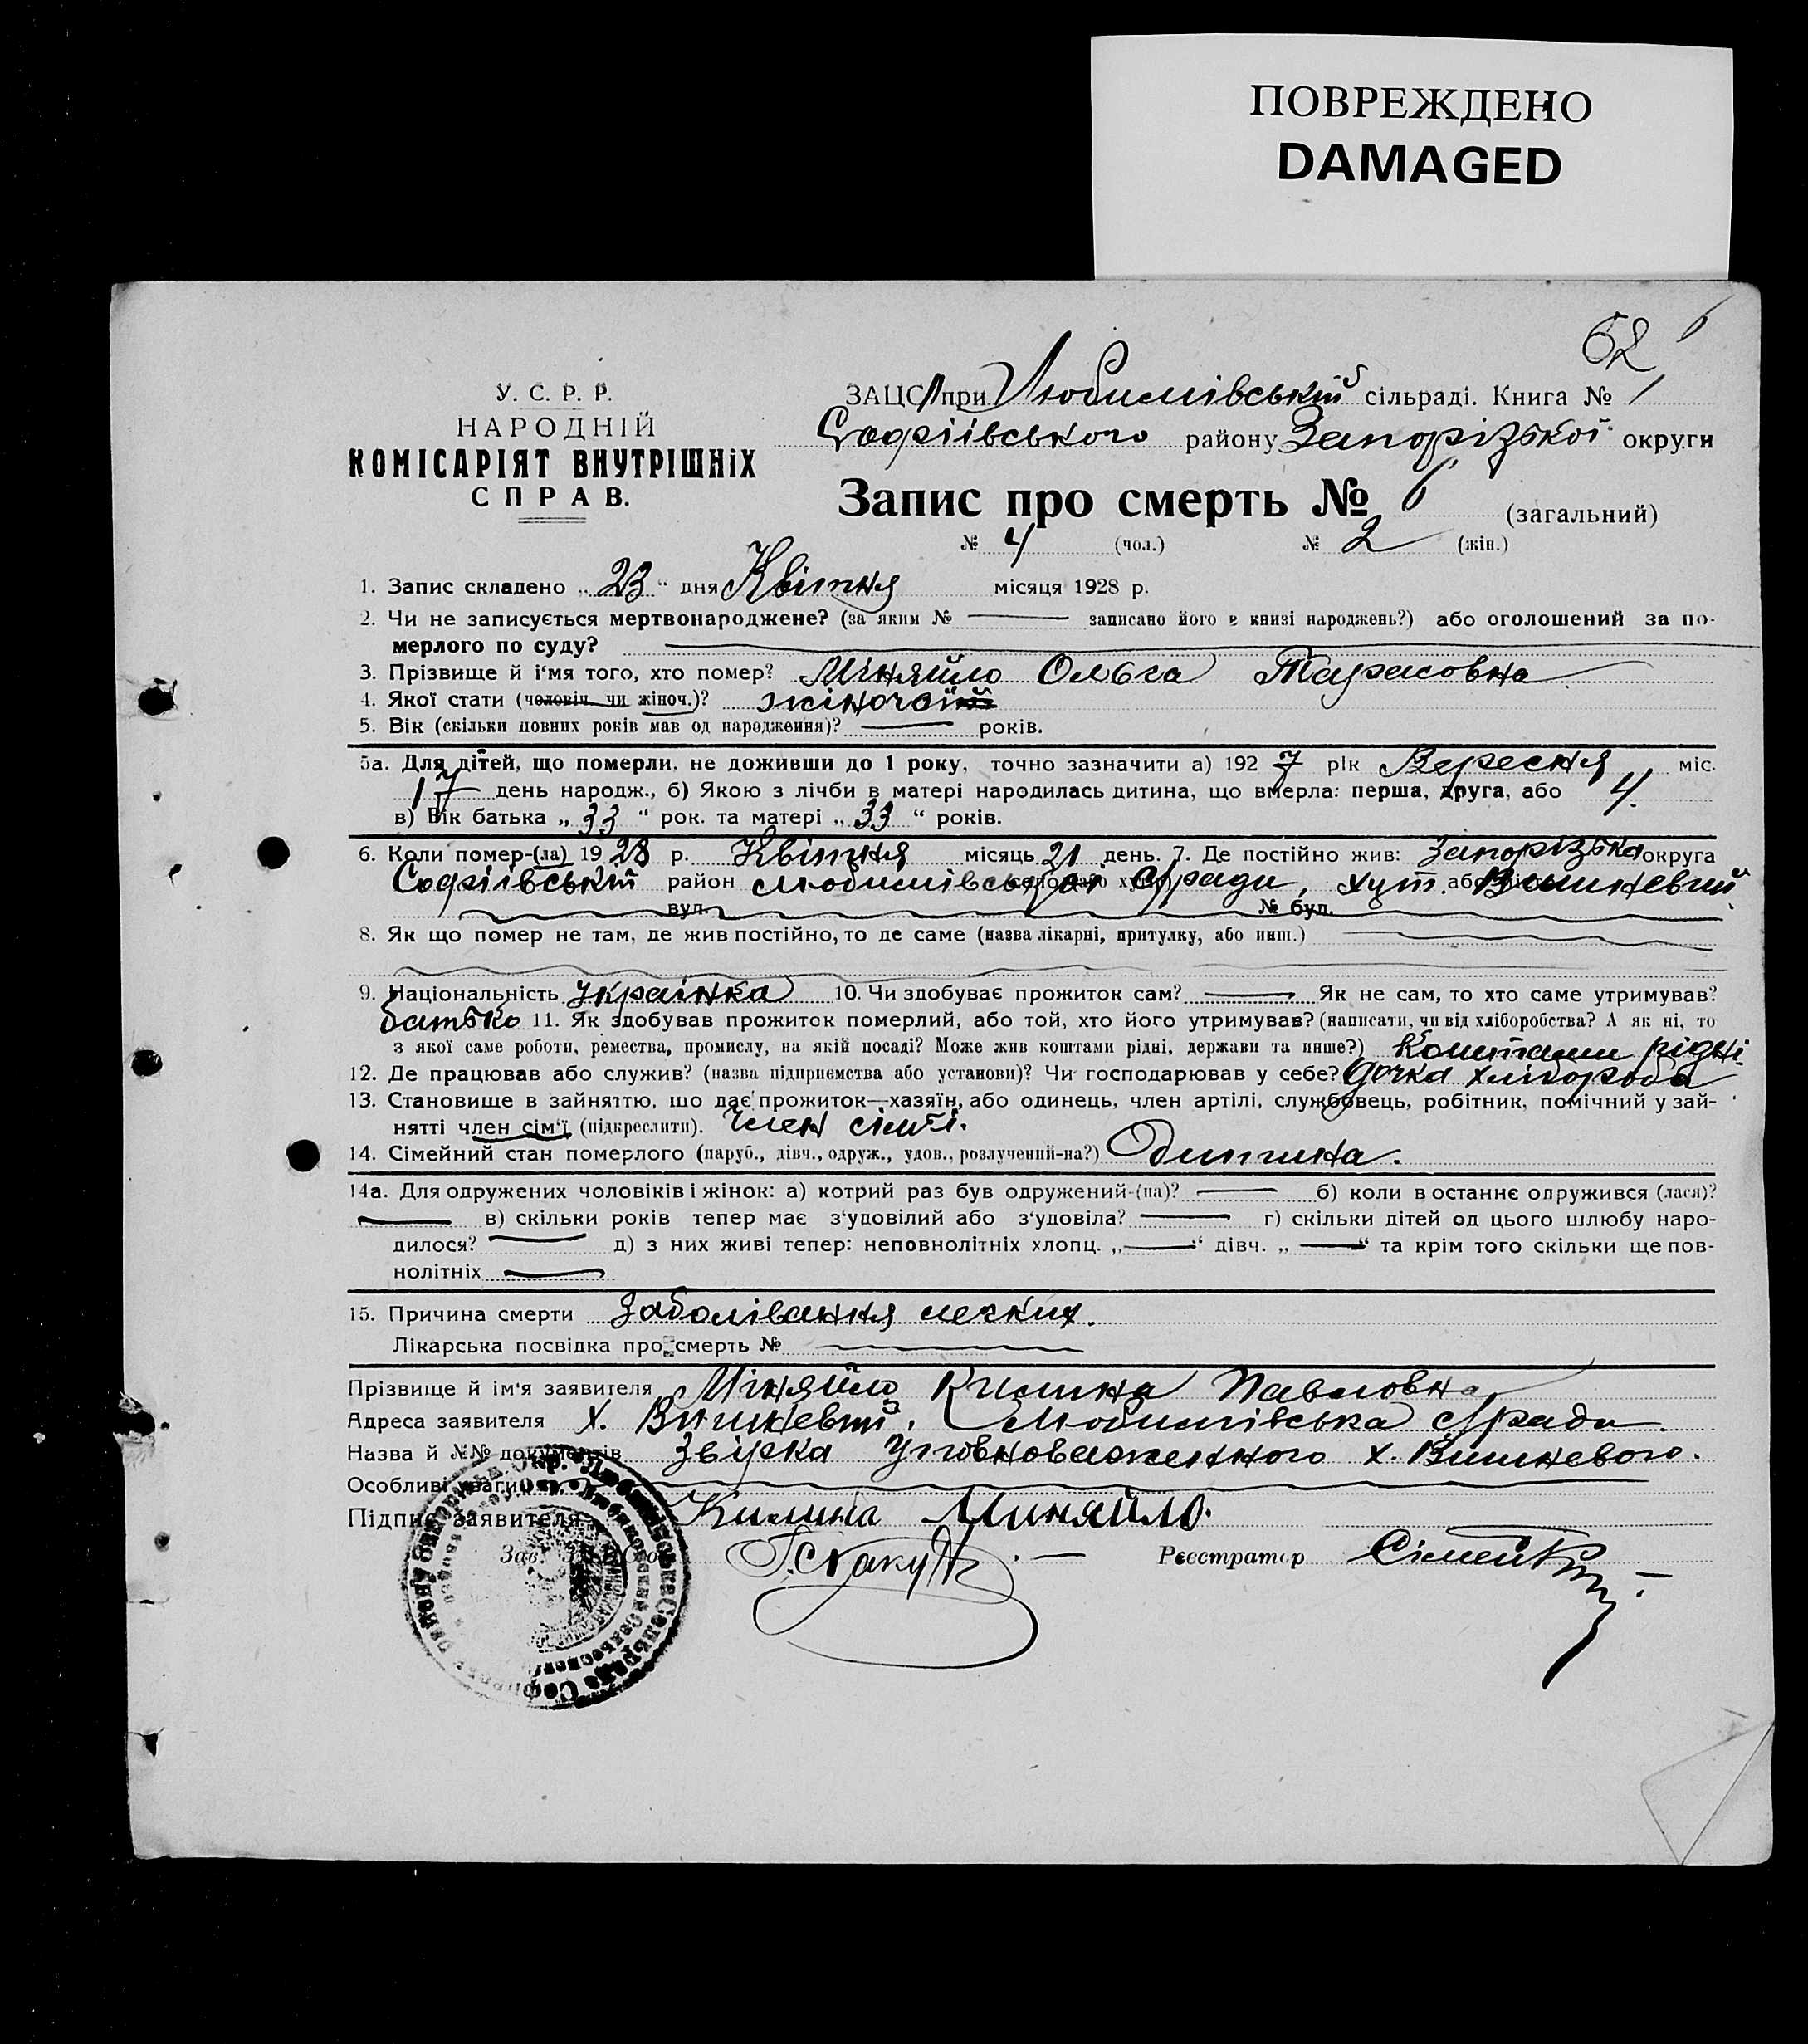 ПОВРЕЖДЕНО
DAMAGED
62
6
У. С. Р. Р.
НАРОДНІЙ
КОМІСАРІЯТ ВНУТРІШНІХ
СПРАВ.
ЗАЦС при Любимівській сільраді. Книга № 1
Софіївського району Запорізької округи
Запис про смерть № 6 (загальний)
№ 4 (чол.) № 2 (жін.)
1. Запис складено „ 23 “ дня Квітня місяця 1928 р.
2. Чи не записується мертвонароджене? (за яким № записано його в книзі народжень?) або оголошений за по-
мерлого по суду?
3. Прізвище й і'мя того, хто помер? Міняйло Ольга Тарасовна
4. Якої стати (чоловіч. чи жіноч.)? жіночої
5. Вік (скільки повних років мав од народження)? років.
5а. Для дітей, що померли, не доживши до 1 року, точно зазначити а) 1927 рік Вересня міс.
17 день народж., б) Якою з лічби в матері народилась дитина, що вмерла: перша, друга, або 4.
в) Вік батька „ 33 “ рок. та матері „ 33 “ років.
6. Коли помер-(ла) 1928 р. Квітня місяць 21 день. 7. Де постійно жив: Запорізька округа
Софіївський район Любимівської с/ради, хут. Вишневий
вул. № буд.
8. Як що помер не там, де жив постійно, то де саме (назва лікарні, притулку, або инш.)
9. Національність Українка 10. Чи здобуває прожиток сам? Як не сам, то хто саме утримував?
батько 11. Як здобував прожиток померлий, або той, хто його утримував? (написати, чи від хліборобства? А як ні, то
з якої саме роботи, ремества, промислу, на якій посаді? Може жив коштами рідні, держави та инше?) Коштами рідні
12. Де працював або служив? (назва підприємства або установи)? Чи господарював у себе? дочка хлібороба
13. Становище в зайняттю, що дає прожиток—хазяїн, або одинець, член артілі, службовець, робітник, помічний у зай-
нятті член сім'ї (підкреслити). Член сім'ї.
14. Сімейний стан померлого (паруб., дівч., одруж., удов., розлучений-на?) Дитина.
14а. Для одружених чоловіків і жінок: а) котрий раз був одружений-(на)? б) коли в останнє одружився (лася)?
в) скільки років тепер має з'удовілий або з'удовіла? г) скільки дітей од цього шлюбу наро-
дилося? д) з них живі тепер: неповнолітніх хлопц. „ “ дівч. „ “ та крім того скільки ще пов-
нолітніх
15. Причина смерти Заболівання легких.
Лікарська посвідка про смерть №
Прізвище й ім'я заявителя Міняйло Килина Павловна
Адреса заявителя х. Вишневий, Любимівська с/рада
Назва й №№ документів Звірка Уповноваженного х. Вишневого.
Особливі уваги
Підпис заявителя Килина Миняйло.
Зав. ЗАЦС'ом Реєстратор